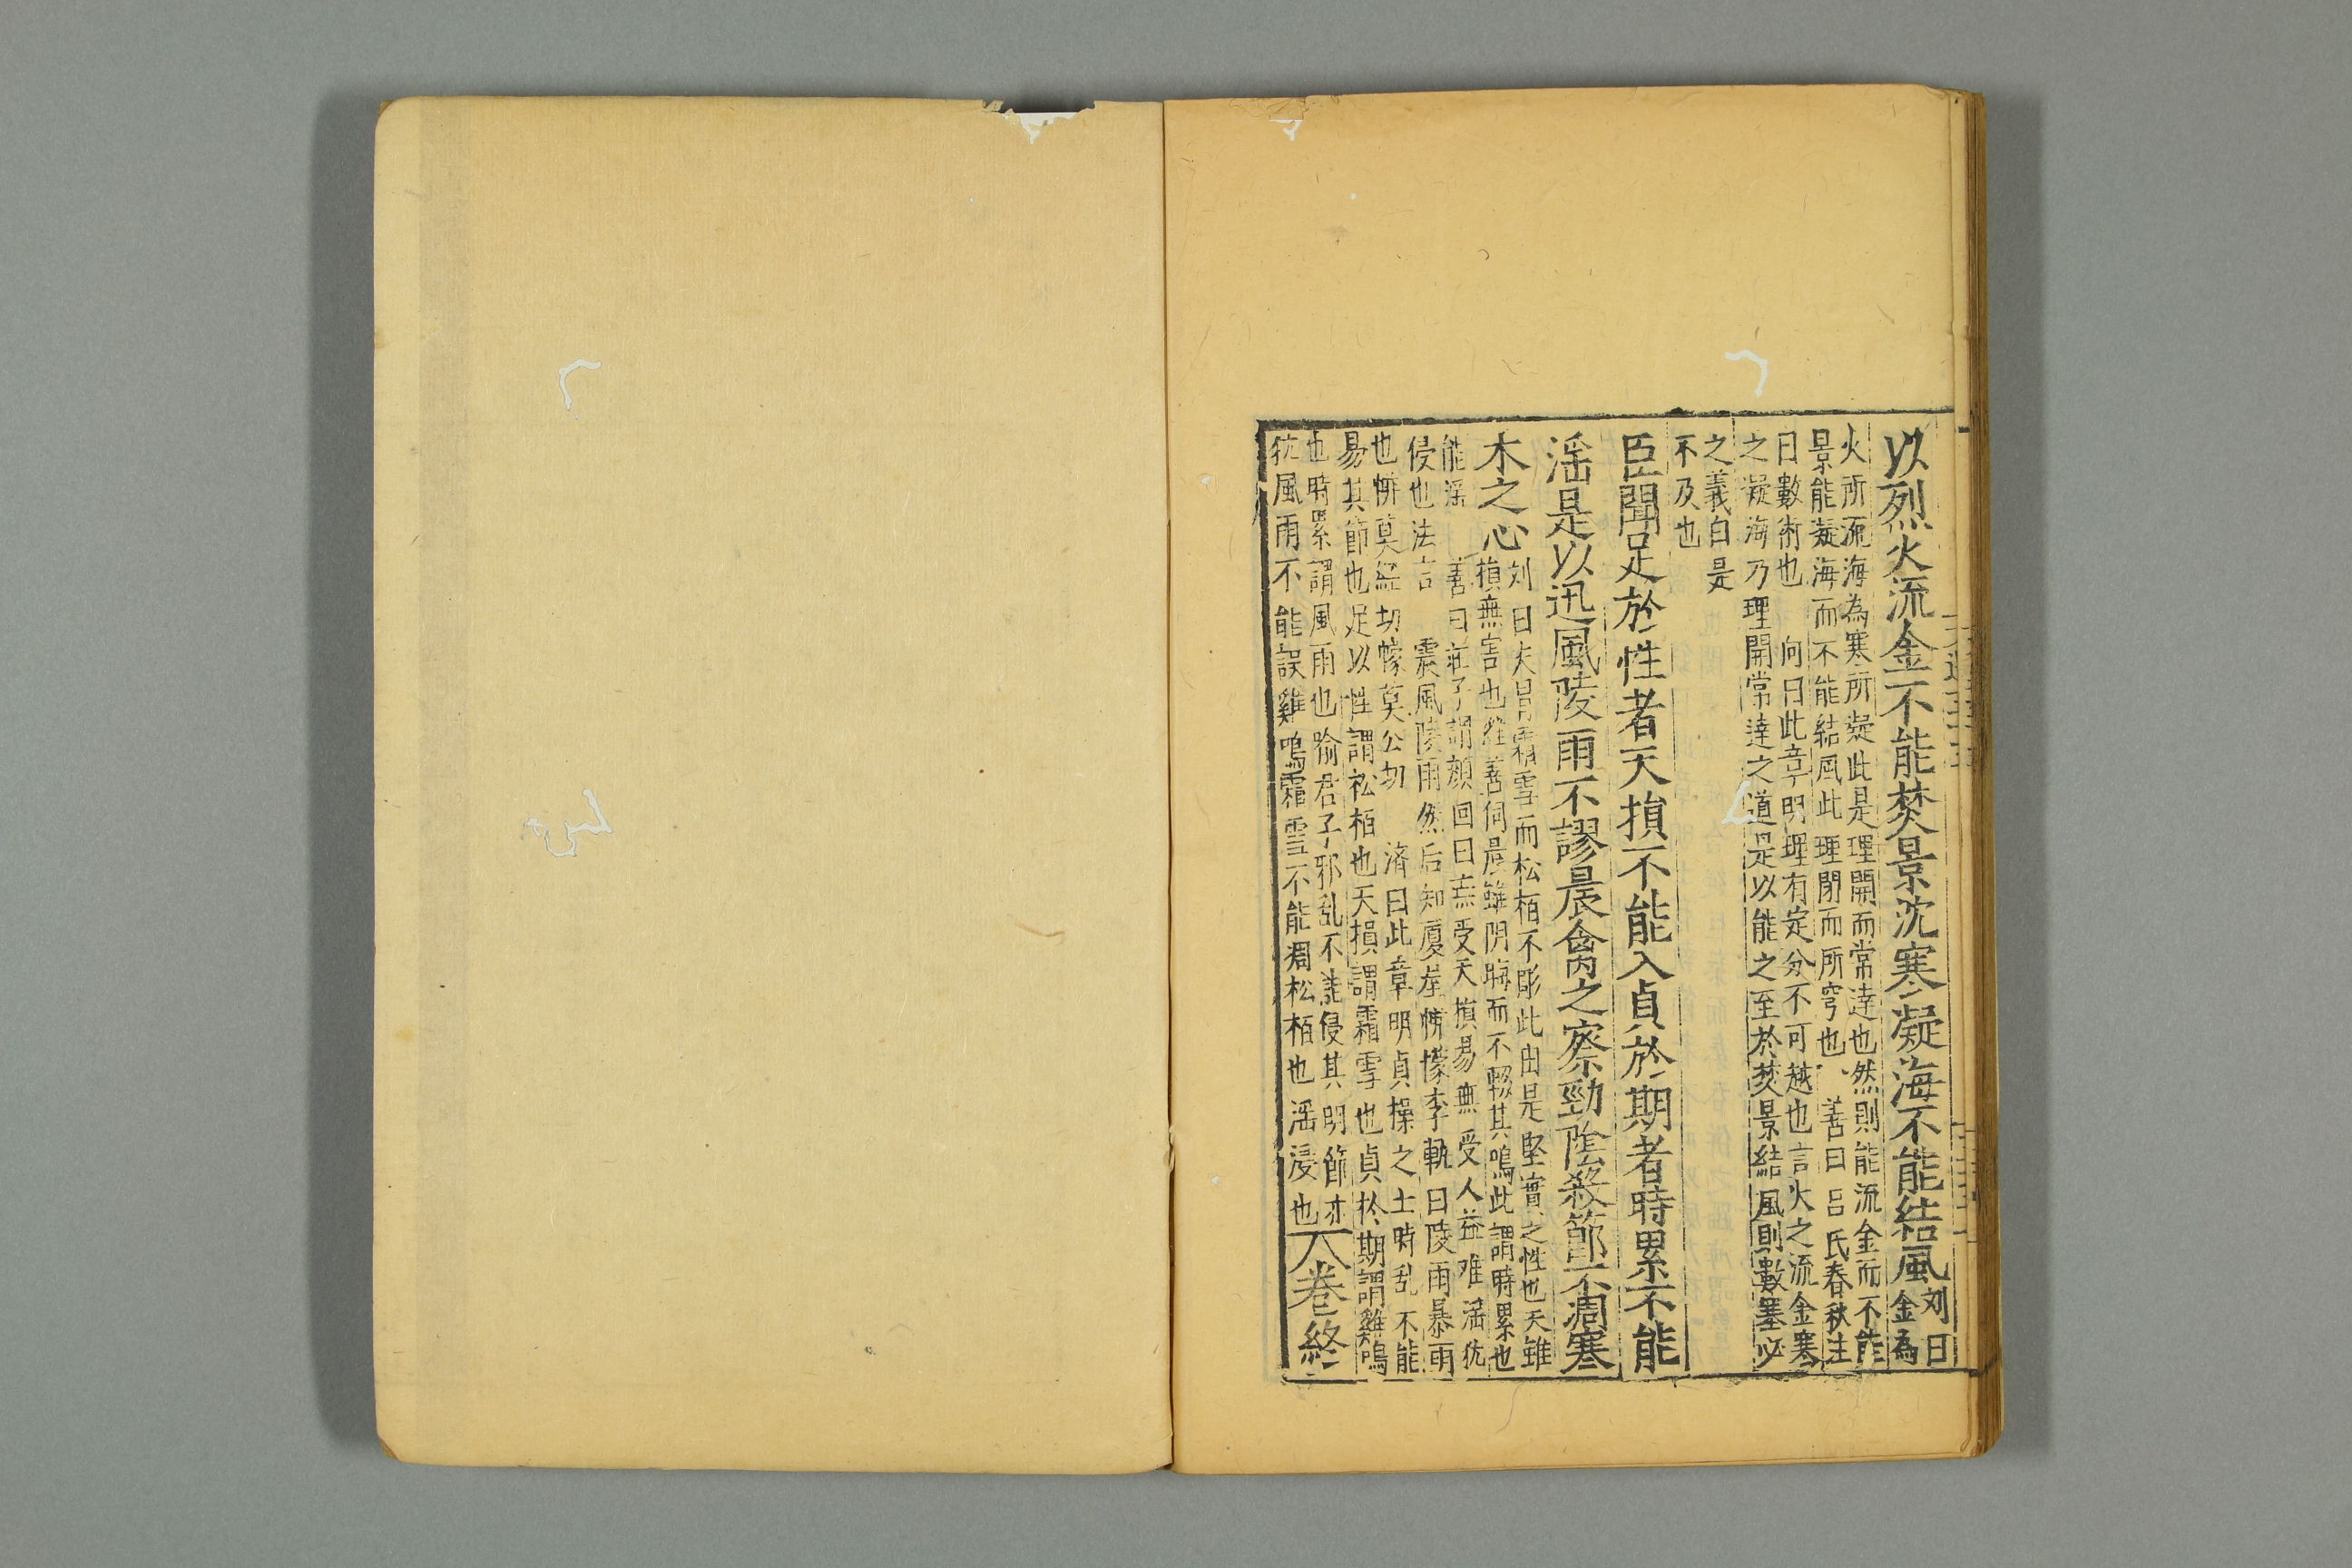 以烈火流金不能焚景沈寒凝海不能結風
刘曰
金為
火所流海為寒所凝此是理開而常達也然則能流金而不能
景能凝海而不能結風此理閉而所窮也 善曰呂氏春秋注
曰數術也 向曰此章明理有定分不可越也言火之流金寒
之凝海乃理開常達之道是以能之至於焚景結風則數塞必
之義自是
不及也
臣聞足於性者天損不能入貞於期者時累不能
滛是以迅風陵雨不謬晨禽之察勁陰殺節不凋寒
木之心
刘曰夫冒霜雪而松栢不彫此由是堅實之性也天雖
損無害也 善伺晨雖阴晦而不輟其鳴此謂時累也
能滛 善曰莊子謂顔回曰無受天損易無受人益难滛犹
侵也法言 震風陵雨然后知厦屋帡幪李軌曰陵雨暴雨
也帡莫經切幪莫公切 濟曰此章明貞操之士時乱不能
易其節也足以性謂松栢也天損謂霜雪也貞於期謂雞鳴
也時累謂風雨也喻君子邪乱不能侵其明節亦
犹風雨不能誤雞鳴霜雪不能凋松栢也滛浸也
八卷終